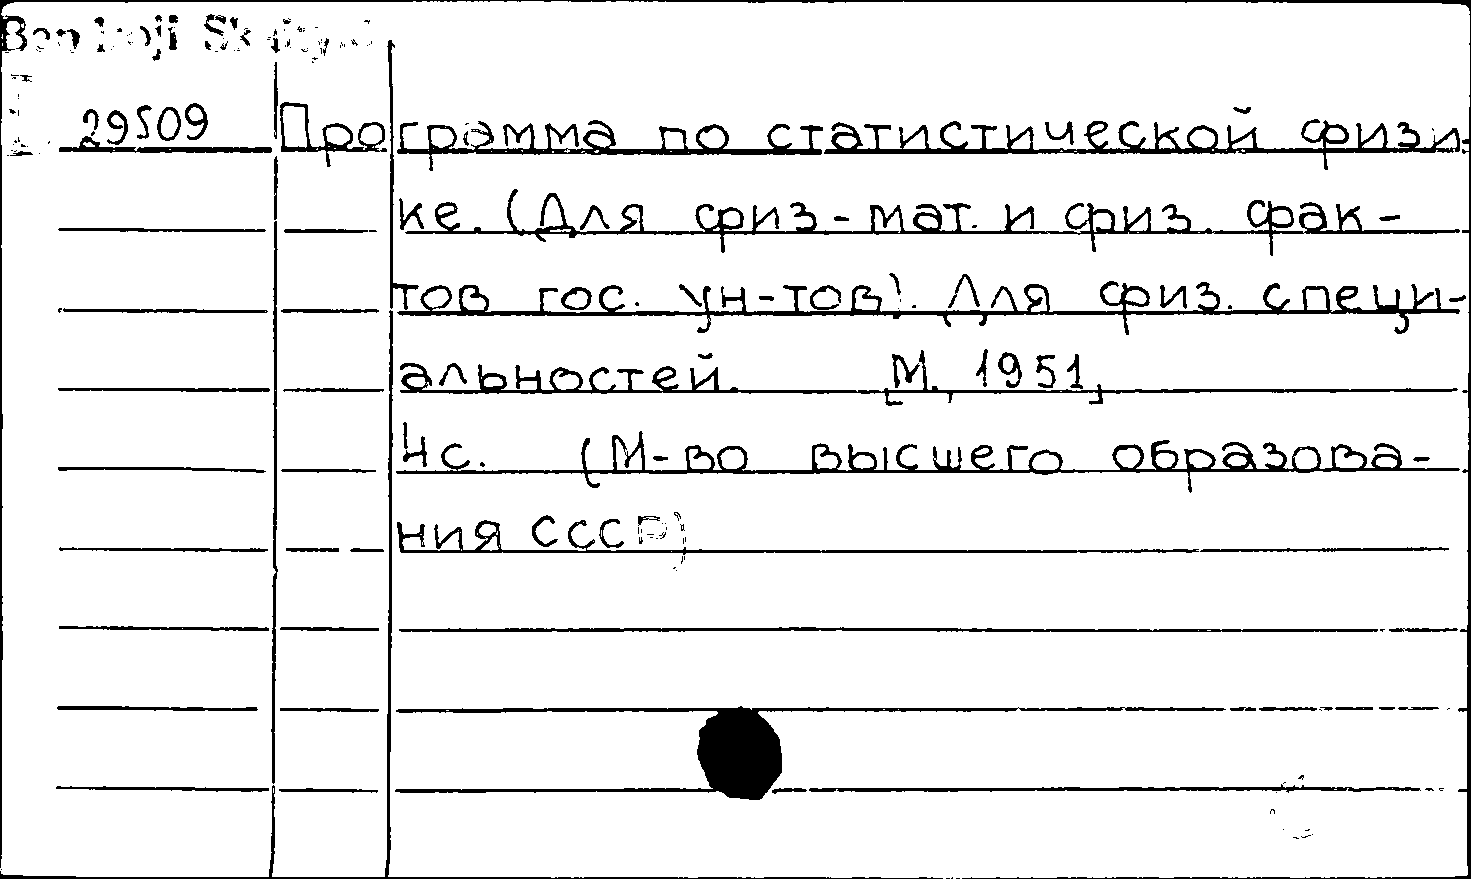 I 29509 Программа по статистической физи-
ке. (Для физ-мат. и физ. фак-
тов гос. ун-тов). Для физ. специ-
альностей. [М., 1951]
4с. (М-во высшего образова-
ния СССР)